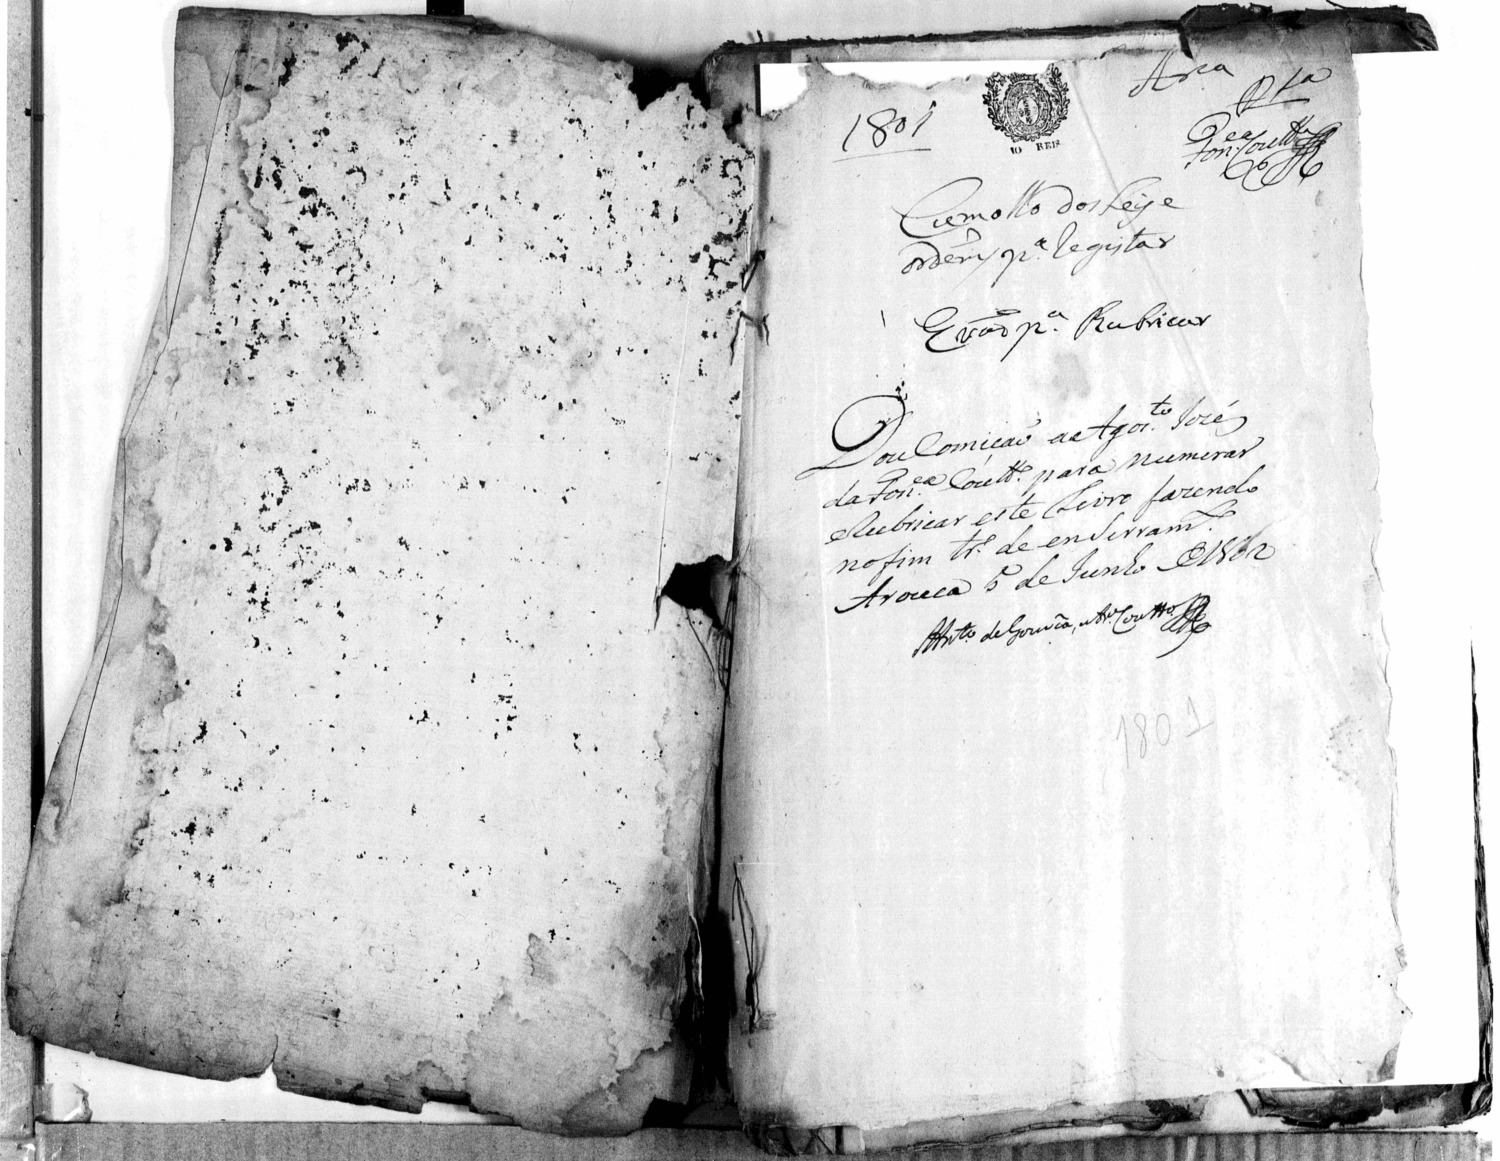 1801
10 REIS
Arca
Fon.ca Coutt.o
dos Leys e
ordens p.a Registar
E vão p.a Rubricar
Dou Comicaõ a Agos.to Jozé
da Fon.ca Coutt.o para numerar
e Rubricar este Livro fazendo
no fim tr.o de enserram.to
Arouca 5 de Junho de 1802
Ant.o de Gouvêa, Coutto
1801